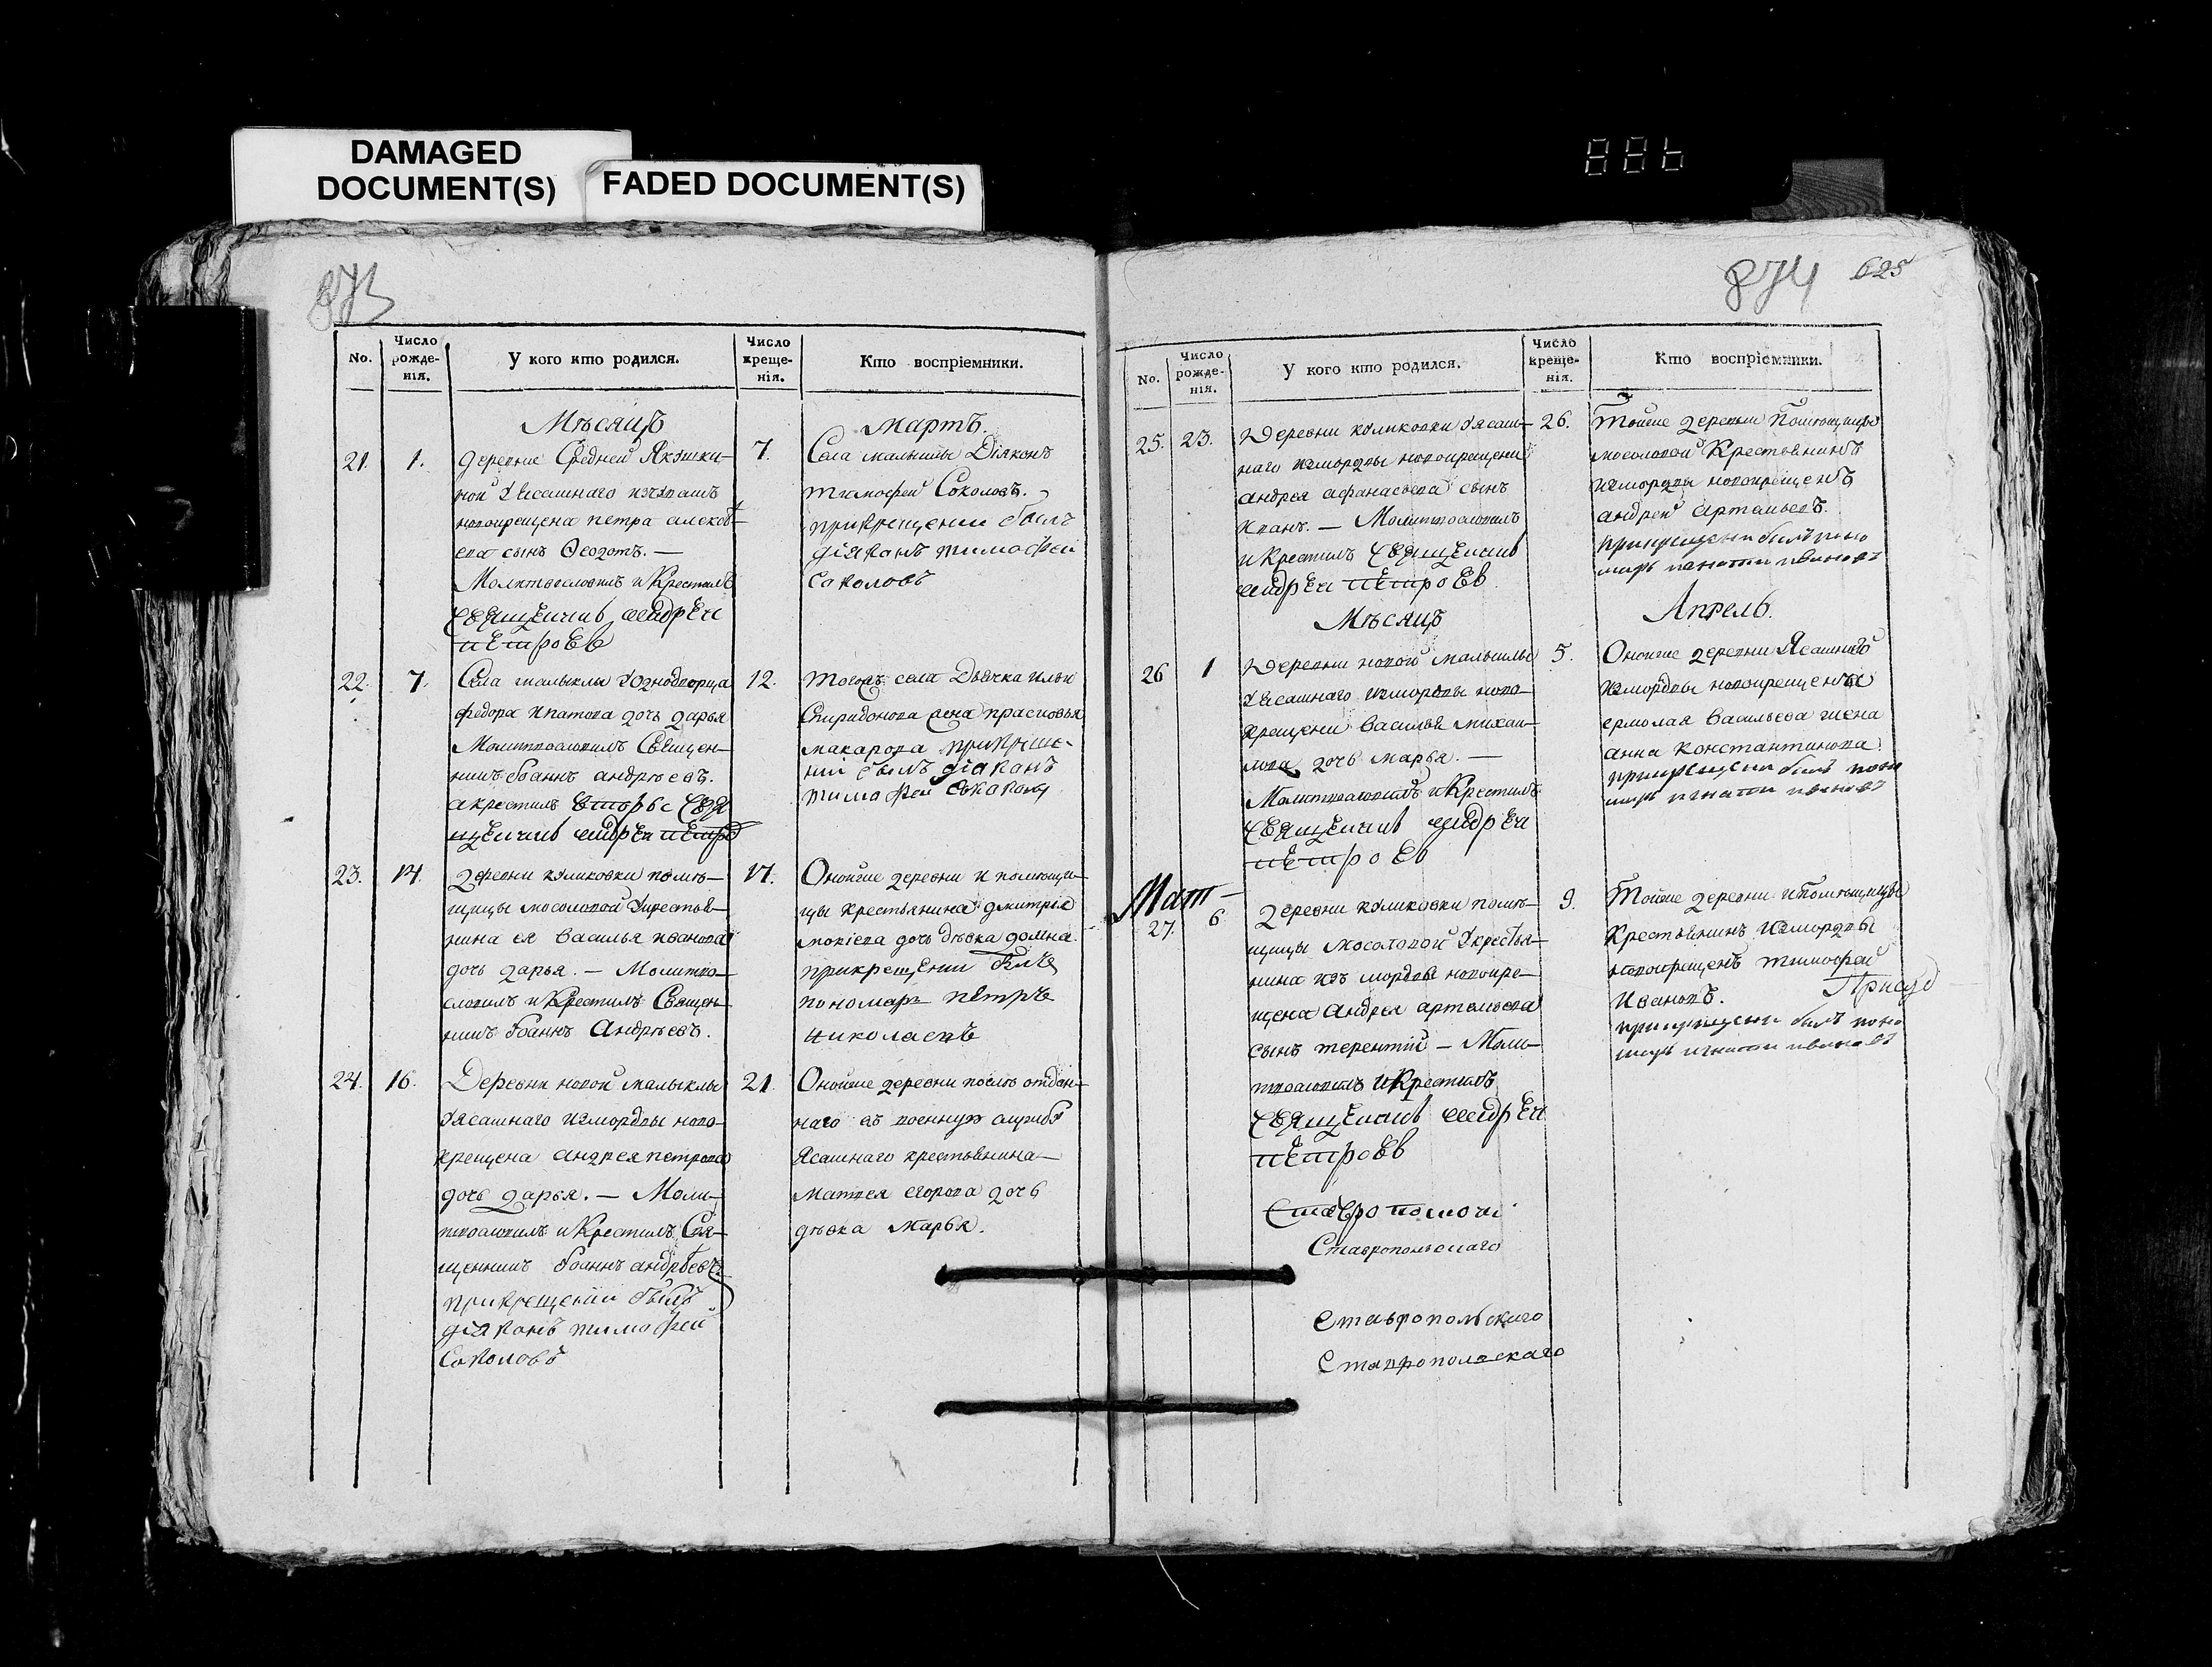 DAMAGED
DOCUMENT(S)
FADED DOCUMENT(S)
886
873
No.
Число рожденія.
У кого кто родился.
Число крещенія.
Кто воспріемники.
Мѣсяцъ
Мартъ.
21.
1.
деревни Средней Якушки-
ной Уясашнаго изчувашъ
новокрещена петра алексѣ-
ева сынъ Ѳеодотъ. —
Молитвословилъ и Крестилъ
священникъ андрей
петровъ
7.
Села малыклы Діяконъ
тимофей Соколовъ.
прикрещении былъ
діяконъ тимофей
соколовъ
22.
7.
Села малыклы Уоднодворца
федора ипатова дочь дарья
Молитвословилъ Священ-
никъ Іоаннъ андрѣевъ.
акрестилъ свя
щенникъ андрей петро
12.
тогожъ села Дьячка ильи
Спиридонова жена прасковья
макарова прикреще-
нии былъ діяконъ
тимофей соколовъ
23.
14.
деревни куликовки помѣ-
щицы мосоловой Укрестья-
нина ея василья иванова
дочь дарья. — Молитво-
словилъ и Крестилъ Священ-
никъ Іоаннъ Андрѣевъ.
17.
Оноиже деревни и помѣщи-
цы крестьянина дмитрія
мокіева дочь дѣвка домна
прикрещении былъ
пономарь петръ
николаевъ
24.
16.
Деревни новой малыклы
Уясашнаго измордвы ново-
крещена андрея петрова
дочь дарья. — Моли-
твословилъ и Крестилъ Свя-
щенникъ Іоаннъ андрѣевъ
прикрещении былъ
діяконъ тимофей
Соколовъ
21.
Оноиже деревни послѣ отдан-
наго въ военную службу
Ясашнаго крестьянина
Матвея егорова дочь
дѣвка Марья.
874
625
No.
Число рожденія.
У кого кто родился.
Число крещенія.
Кто воспріемники.
25.
23.
Деревни куликовки Уясаш-
наго измордвы новокрещена
андрея афанасьева сынъ
иванъ. — Молитвословилъ
и крестилъ священникъ
андрей петровъ
26.
Тойже деревни помѣщицы
мосоловой Крестьянинъ
измордвы новокрещенъ
андрей артамьевъ.
прикрещении былъ поно
марь игнатий ивановъ
Мѣсяцъ
Апрель.
26
1
Деревни новой малыклы
Уясашнаго измордвы ново-
крещена василья михаи-
лова дочь марья. —
Молитвословилъ и Крестилъ
священникъ андрей
петровъ
5.
Оноиже деревни Ясашнаго
измордвы новокрещена
ермолая васильева жена
анна константинова
прикрещении былъ поно
марь игнатий ивановъ
27.
6
деревни куликовки помѣ-
щицы мосоловой Укрестья-
нина изъ мордвы новокре-
щена андрея артамьева
сынъ терентий — Моли-
твословилъ и Крестилъ
священникъ андрей
петровъ
9.
Тойже деревни ипомѣщицы
Крестьянинъ измордвы
новокрещенъ тимофей
Ивановъ.
прикрещении былъ поно
марь игнатий ивановъ
Ставропольскаго
Ставропольскаго
Ставропольскаго